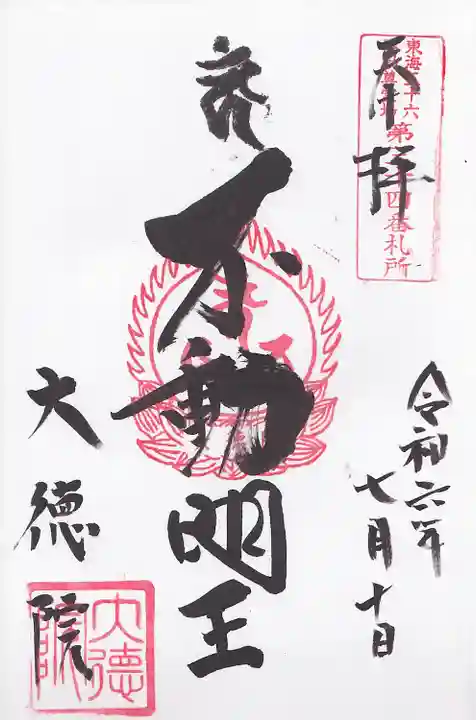 東海三十六
尊霊場
第 四番札所
奉拝
不動明王
令和六年
七月十日
大徳院
大德院